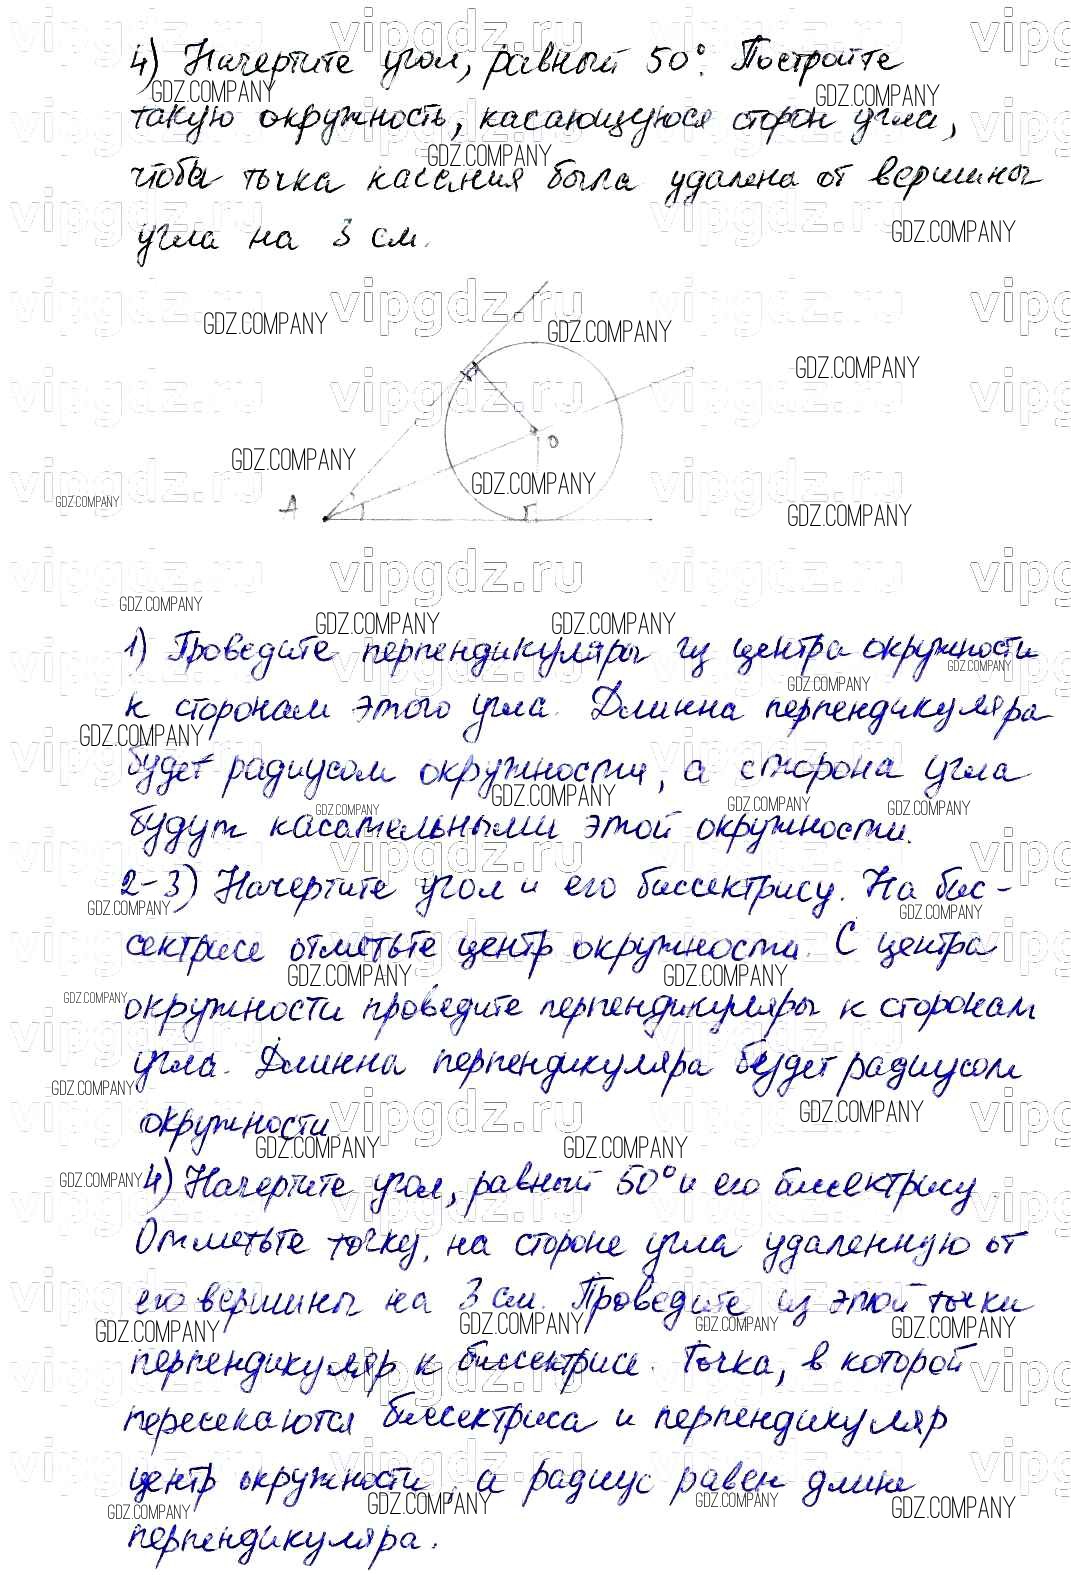 4) Начертите угол, равный 50°. Постройте
такую окружность, касающуюся сторон угла,
чтоба точка касания была удалена от вершины
угла на 3 см.
A
O
1) Проведите перпендикуляры из центра окружности
к сторонам этого угла. Длинна перпендикуляра
будет радиусом окружности, а сторона угла
будут касательными этой окружности.
2-3) Начертите угол и его биссектрису. На бис-
сектрисе отметьте центр окружности. С центра
окружности проведите перпендикуляры к сторонам
угла. Длинна перпендикуляра будет радиусом
окружности
4) Начертите угол, равный 50° и его биссектрису.
Отметьте точку, на стороне угла удаленную от
его вершины на 3 см. Проведите из этой точки
перпендикуляр к биссектрисе. Точка, в которой
пересекаются биссектриса и перпендикуляр
центр окружности, а радиус равен длине
перпендикуляра.
vipgdz.ru
GDZ.COMPANY